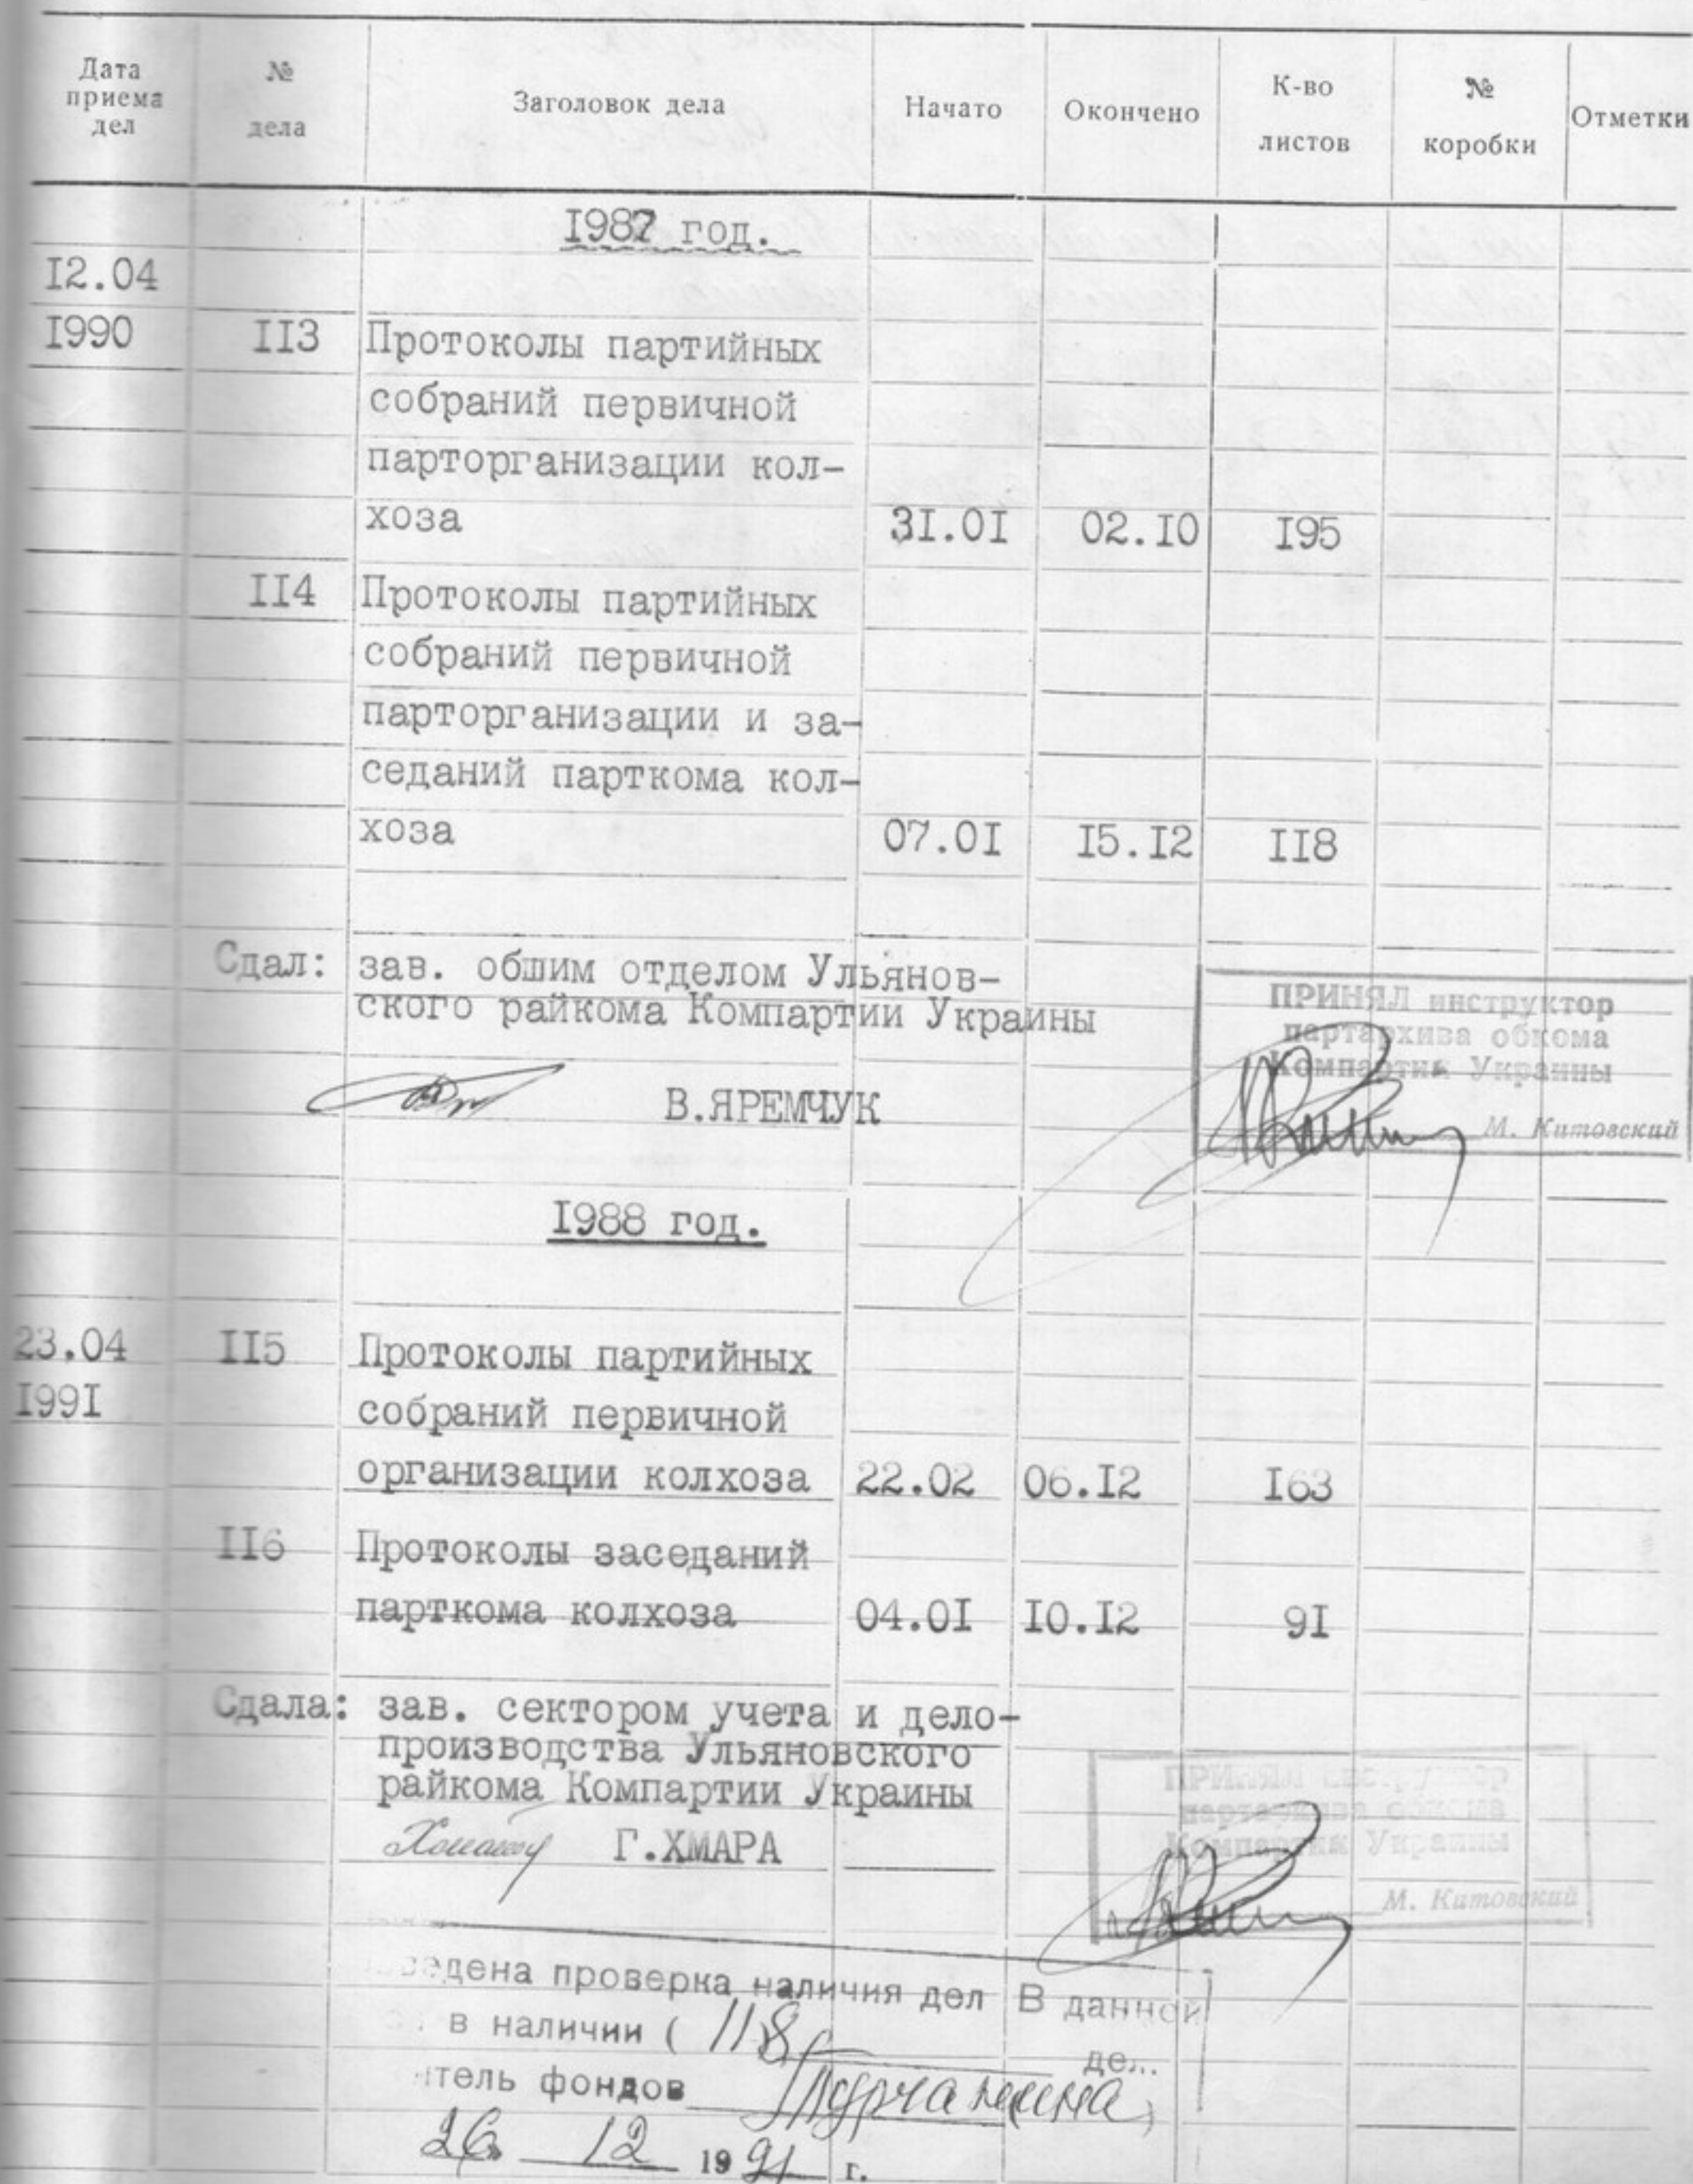 Дата приема дел
№ дела
Заголовок дела
Начато
Окончено
К-во листов
№ коробки
Отметки
I987 год.
I2.04
I990 II3 Протоколы партийных
собраний первичной
парторганизации кол-
хоза 3I.0I 02.I0 I95
II4 Протоколы партийных
собраний первичной
парторганизации и за-
седаний парткома кол-
хоза 07.0I I5.I2 II8
Сдал: зав. обшим отделом Ульянов-
ского райкома Компартии Украины
В.ЯРЕМЧУК
ПРИНЯЛ инструктор
партархива обкома
Компартии Украины
М. Китовский
I988 год.
23.04 II5 Протоколы партийных
I99I собраний первичной
организации колхоза 22.02 06.I2 I63
II6 Протоколы заседаний
парткома колхоза 04.0I I0.I2 9I
Сдала: зав. сектором учета и дело-
производства Ульяновского
райкома Компартии Украины
Г.ХМАРА
ПРИНЯЛ инструктор
партархива обкома
Компартии Украины
М. Китовский
проверка наличия дел В данной
в наличии ( 118
фондов
26 12 1991 г.